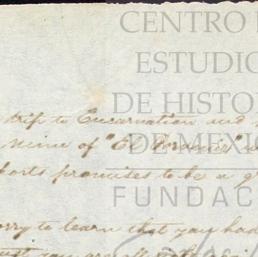 CENTRO
ESTUDIO
DE HISTO
DE MEXI
FUNDAC
trip to Encarnation and
mine of "El
ports promises to be a g
orry to learn that you had